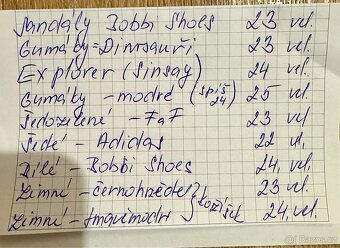 Sandály Bobbi Shoes 23 vel.
Gumáky = Dinosauři 23 vel.
Explorer (Sinsay) 24 vel.
Gumáky - modré (spíš 24) 25 vel.
Šedozelené - F&F 23 vel.
Šedé - Adidas 22 vel.
Bílé - Bobbi Shoes 24, vel.
Zimní - černohnědé } kožíšek 23 vel.
Zimní - tmavěmodré } 24, vel.